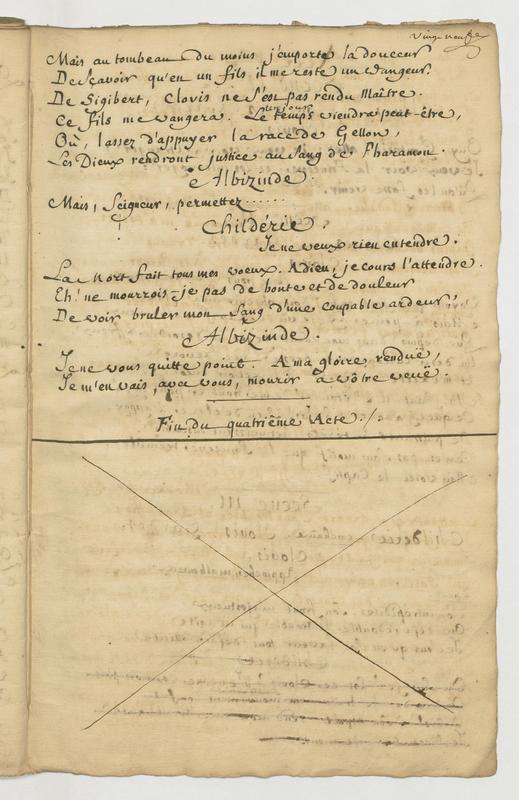 Vingt neuf.
Mais au tombeau du moins j'emporte la douceur
De sçavoir qu'en un fils il me reste un vangeur.
De Sigibert, Clovis ne s'est pas rendu Maître.
Ce fils me vangera. Le temps viendra peut-être,
Où, lassez d'appuyer la race de Gellon,
Les Dieux rendront justice au Sang de Pharamon.
Albizinde.
Mais, Seigneur, permettez......
Childéric.
Je ne veux rien entendre.
La Mort fait tous mes voeux. Adieu, je cours l'attendre.
Eh! ne mourrois-je pas de honte et de douleur
De voir bruler mon Sang d'une coupable ardeur?
Albizinde.
Je ne vous quitte point. A ma gloire renduë,
Je m'en vais, avec vous, mourir à vôtre veuë.
Fin du quatriême Acte ./.